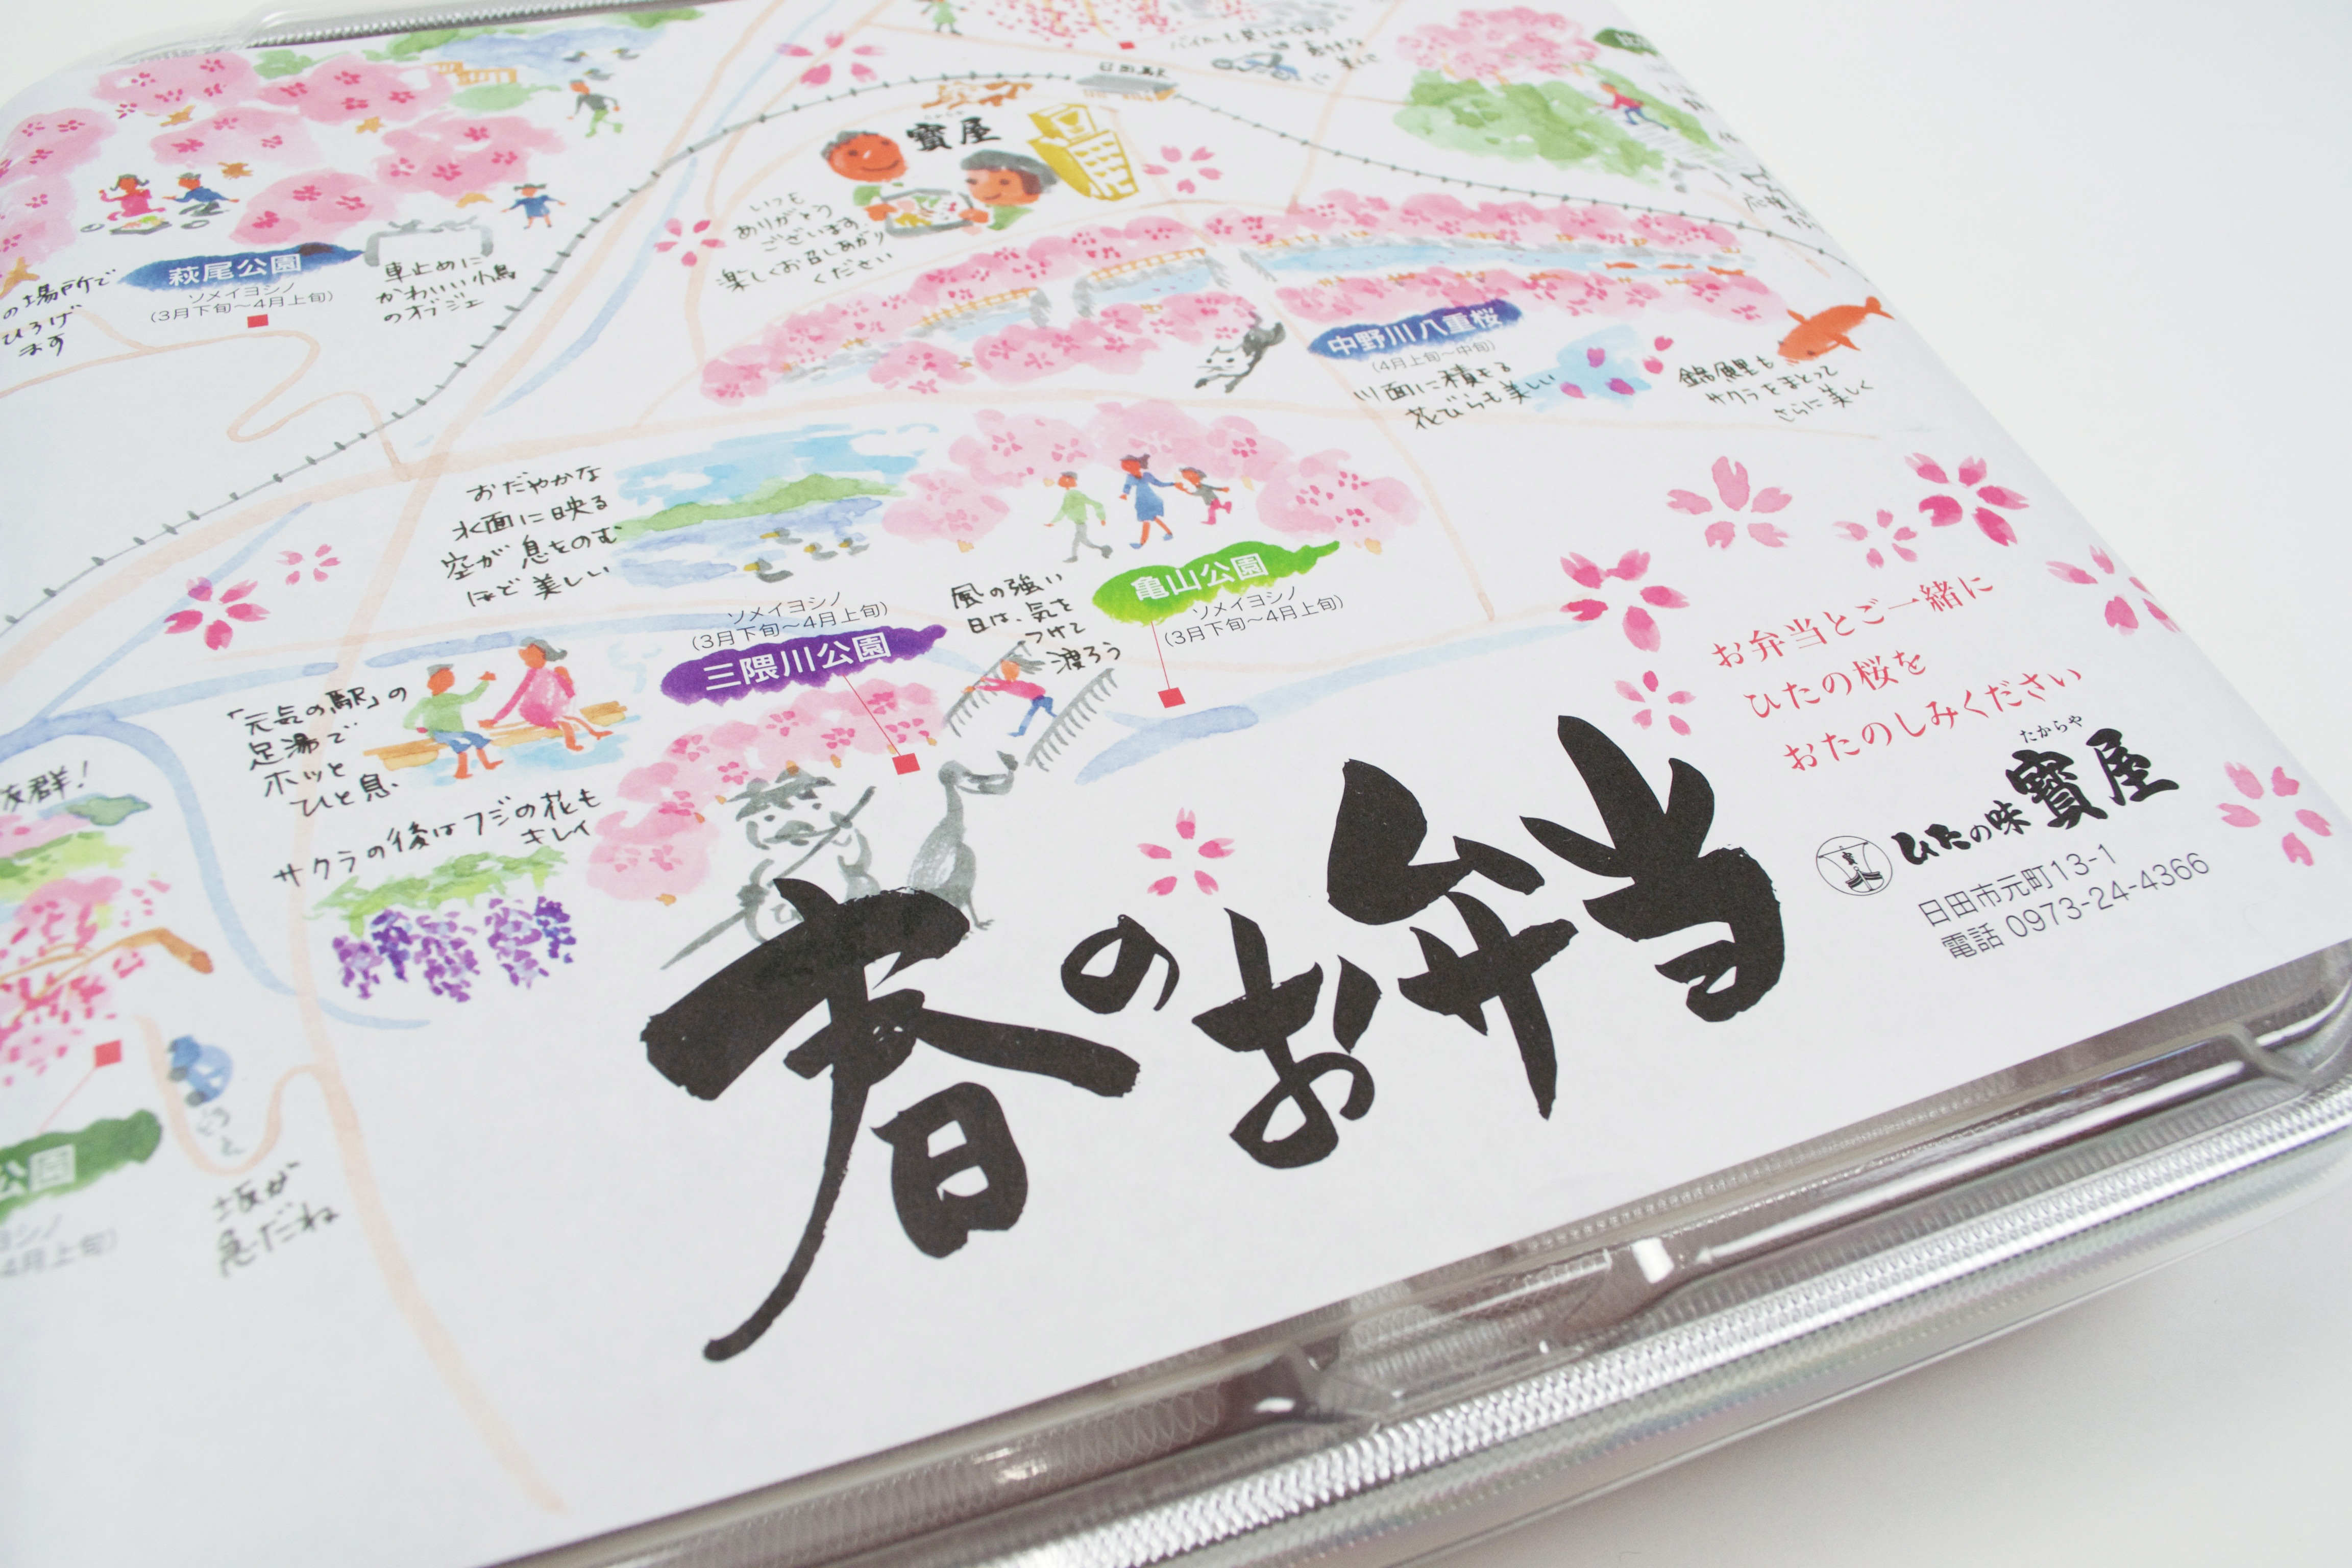 日田駅
寳屋
いつも
ありがとう
ございます
楽しくお召しあがり
ください
の場所で
ひろげ
ます
萩尾公園
ソメイヨシノ
(3月下旬～4月上旬)
車止めに
かわいい小鳥
のオブジェ
中野川八重桜
(4月上旬～中旬)
川面に積もる
花びらも美しい
錦鯉も
サクラをまとって
さらに美しく
おだやかな
水面に映る
空が息をのむ
ほど美しい
風の強い
日は、気を
つけて
渡ろう
亀山公園
ソメイヨシノ
(3月下旬～4月上旬)
ソメイヨシノ
(3月下旬～4月上旬)
三隈川公園
「元気の駅」の
足湯で
ホッと
ひと息.
サクラの後はフジの花も
キレイ
抜群!
公園
ヨシノ
4月上旬)
坂が
急だね
お弁当とご一緒に
ひたの桜を
おたのしみください
たからや
ひたの味 寳屋
日田市元町13-1
電話 0973-24-4366
春のお弁当